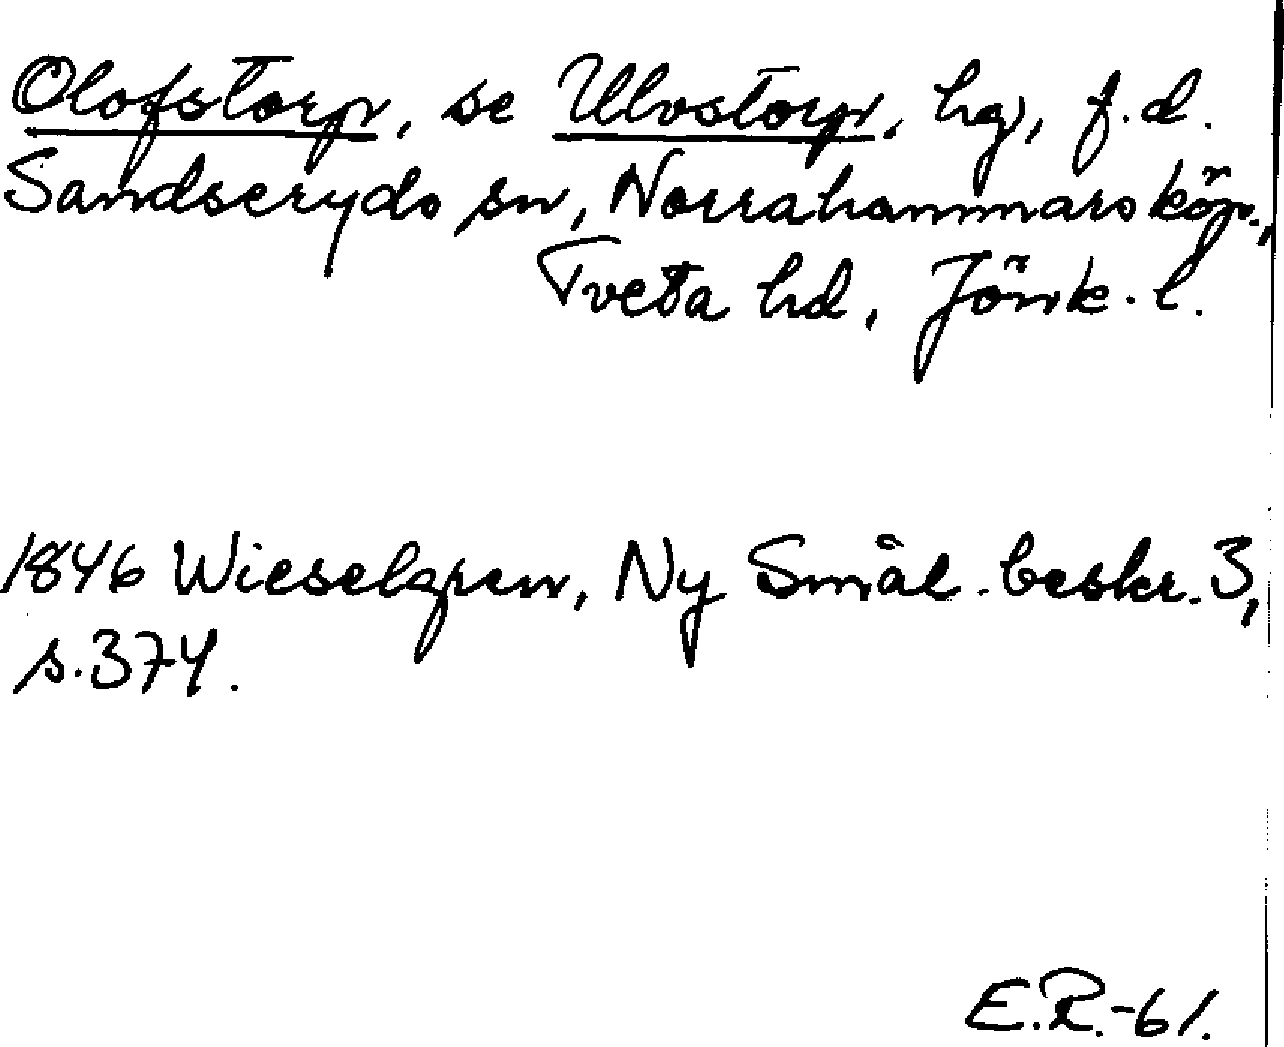 Olofstorp, se Ulvstorp, hg, f.d.
Sandseryds sn, Norrahammars köp.,
Tveta hd, Jönk. l.
1846 Wieselgren, Ny Smål. beskr. 3,
s. 374.
E.R.-61.